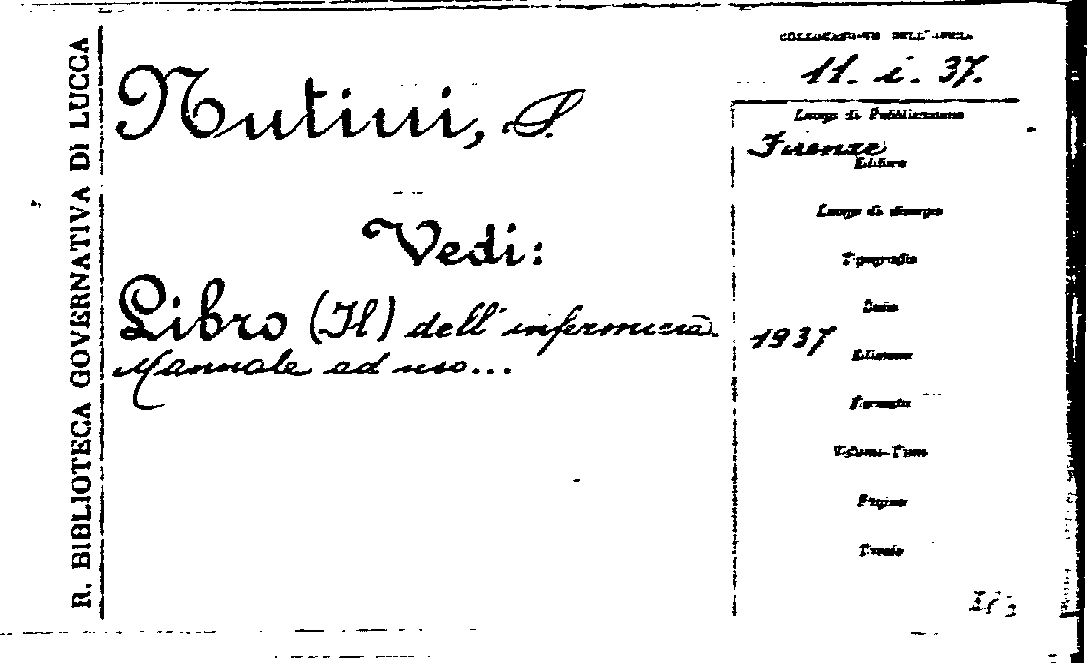 R. BIBLIOTECA GOVERNATIVA DI LUCCA
Nutini, S.
Vedi:
Libro (Il) dell' infermiera.
Manuale ad uso...
COLLOCAZIONE DELL'OPERA
11. i. 37.
Luogo di Pubblicazione
Firenze
Editore
Luogo di stampa
Tipografia
Data
1937
Edizione
Formato
Volumi-Tomi
Pagine
Tavole